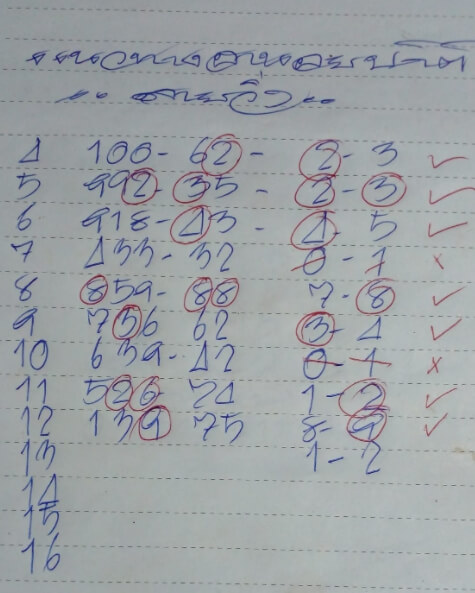 4 100-62- 2-3 ✓
5 992-35- 2-3 ✓
6 918-43- 4-5 ✓
7 433-32 0-1 ×
8 859-88 7-8 ✓
9 756 62 3-4 ✓
10 639-42 0-1 ×
11 526 74 1-2 ✓
12 139 75 8-9 ✓
13 1-2
14
15
16